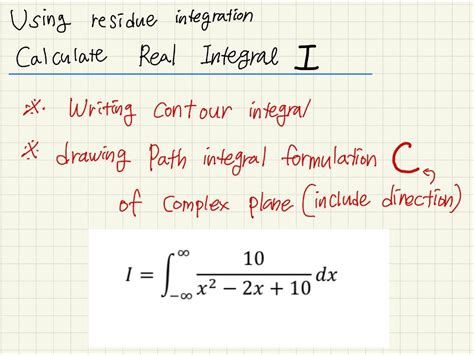 Using residue integration
Calculate Real Integral I
※. Writing contour integral
※ drawing Path integral formulation C
of complex plane (include direction)
I = ∫_{-∞}^{∞} 10/(x² − 2x + 10) dx